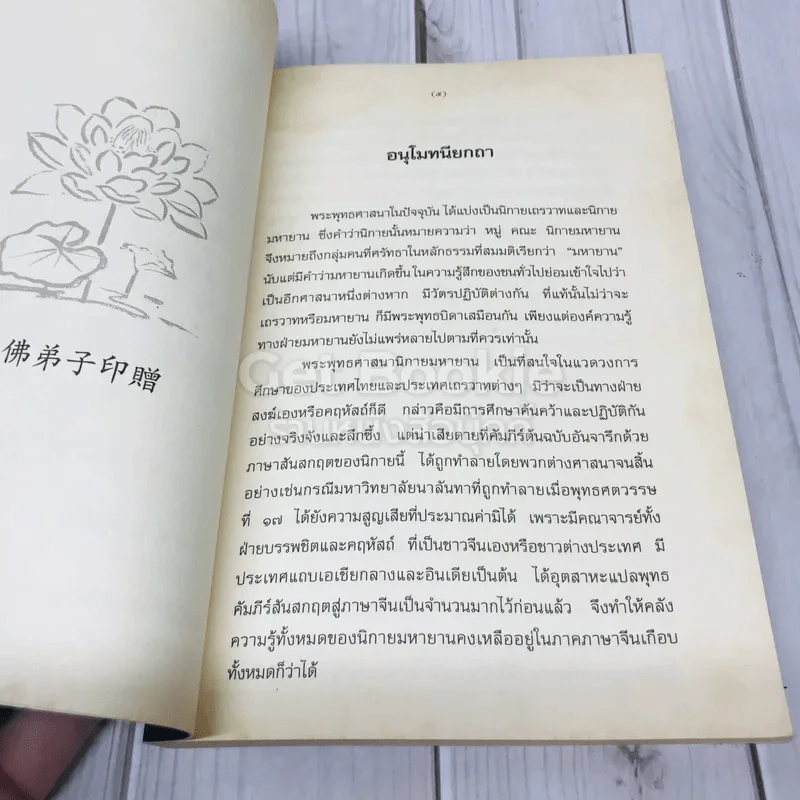 佛弟子印贈
(๕)
อนุโมทนียกถา
พระพุทธศาสนาในปัจจุบัน ได้แบ่งเป็นนิกายเถรวาทและนิกาย
มหายาน ซึ่งคำว่านิกายนั้นหมายความว่า หมู่ คณะ นิกายมหายาน
จึงหมายถึงกลุ่มคนที่ศรัทธาในหลักธรรมที่สมมติเรียกว่า “มหายาน”
นับแต่มีคำว่ามหายานเกิดขึ้น ในความรู้สึกของชนทั่วไปย่อมเข้าใจไปว่า
เป็นอีกศาสนาหนึ่งต่างหาก มีวัตรปฏิบัติต่างกัน ที่แท้นั้นไม่ว่าจะ
เถรวาทหรือมหายาน ก็มีพระพุทธบิดาเสมือนกัน เพียงแต่องค์ความรู้
ทางฝ่ายมหายานยังไม่แพร่หลายไปตามที่ควรเท่านั้น
พระพุทธศาสนานิกายมหายาน เป็นที่สนใจในแวดวงการ
ศึกษาของประเทศไทยและประเทศเถรวาทต่างๆ มิว่าจะเป็นทางฝ่าย
สงฆ์เองหรือคฤหัสถ์ก็ดี กล่าวคือมีการศึกษาค้นคว้าและปฏิบัติกัน
อย่างจริงจังและลึกซึ้ง แต่น่าเสียดายที่คัมภีร์ต้นฉบับอันจารึกด้วย
ภาษาสันสกฤตของนิกายนี้ ได้ถูกทำลายโดยพวกต่างศาสนาจนสิ้น
อย่างเช่นกรณีมหาวิทยาลัยนาลันทาที่ถูกทำลายเมื่อพุทธศตวรรษ
ที่ ๑๗ ได้ยังความสูญเสียที่ประมาณค่ามิได้ เพราะมีคณาจารย์ทั้ง
ฝ่ายบรรพชิตและคฤหัสถ์ ที่เป็นชาวจีนเองหรือชาวต่างประเทศ มี
ประเทศแถบเอเชียกลางและอินเดียเป็นต้น ได้อุตสาหะแปลพุทธ
คัมภีร์สันสกฤตสู่ภาษาจีนเป็นจำนวนมากไว้ก่อนแล้ว จึงทำให้คลัง
ความรู้ทั้งหมดของนิกายมหายานคงเหลืออยู่ในภาคภาษาจีนเกือบ
ทั้งหมดก็ว่าได้
Get Bookie